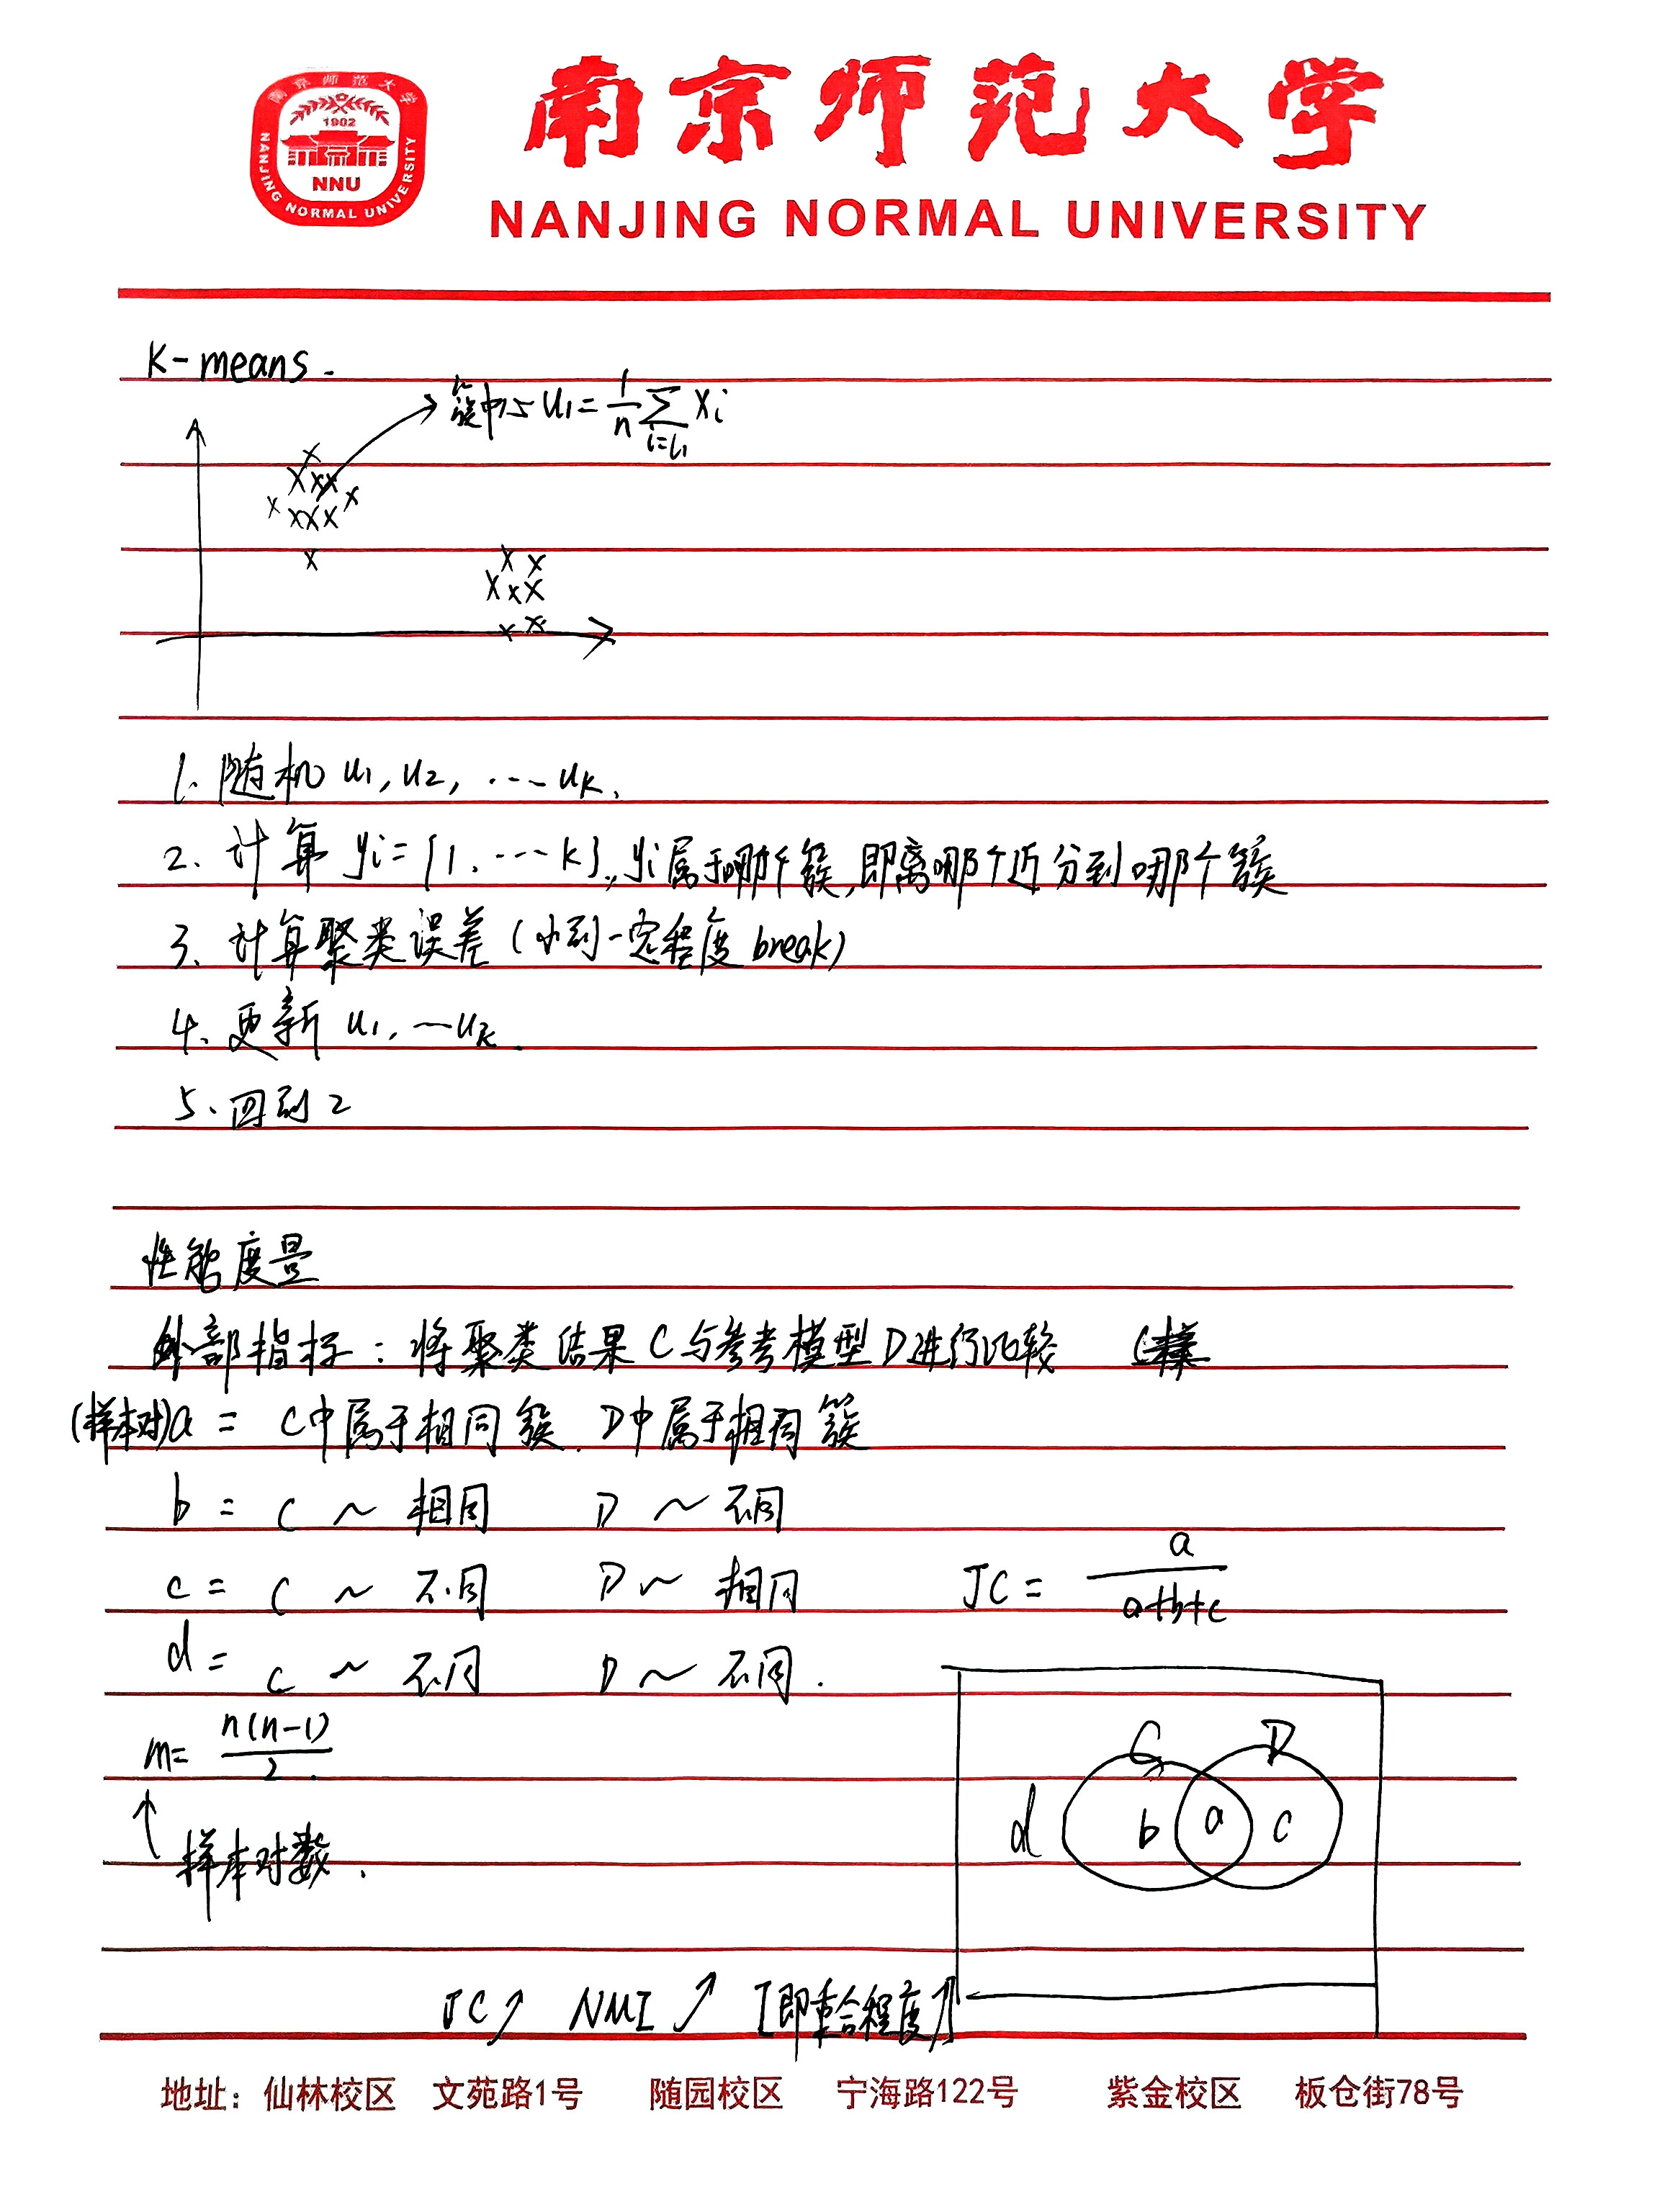 南京师范大学
1902
NNU
NANJING NORMAL UNIVERSITY
南京师范大学
NANJING NORMAL UNIVERSITY
K-means.
簇中心 u₁ = 1/n ∑ xᵢ
i=c₁
1. 随机 u₁, u₂, ... uₖ.
2. 计算 yᵢ = {1, ... k}, yᵢ属于哪个簇,即离哪个近分到哪个簇
3. 计算聚类误差(小到一定程度 break)
4. 更新 u₁, ... uₖ.
5. 回到 2
性能度量
外部指标: 将聚类结果 C 与参考模型 D 进行比较
(样本对) a = C中属于相同簇. D中属于相同簇
b = C ~ 相同 D ~ 不同
c = C ~ 不同 D ~ 相同 JC = a/(a+b+c)
d = C ~ 不同 D ~ 不同.
m = n(n-1)/2.
↑ 样本对数.
C D
d b a c
JC↗ NMI↗ [即重合程度]
地址: 仙林校区 文苑路1号 随园校区 宁海路122号 紫金校区 板仓街78号